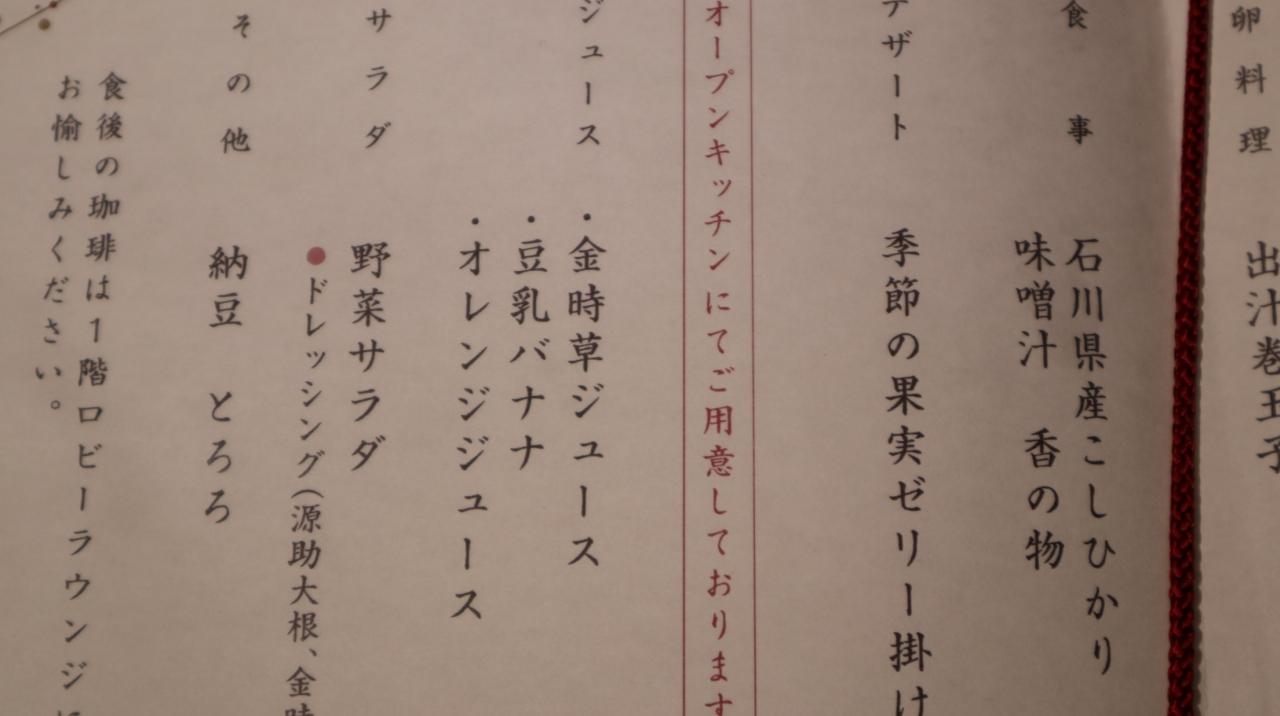 卵料理
出汁巻玉子
食事
石川県産こしひかり
味噌汁 香の物
デザート
季節の果実ゼリー掛け
オープンキッチンにてご用意しております
ジュース
・金時草ジュース
・豆乳バナナ
・オレンジジュース
サラダ
野菜サラダ
●ドレッシング(源助大根、金時
その他
納豆 とろろ
食後の珈琲は1階ロビーラウンジに
お愉しみください。